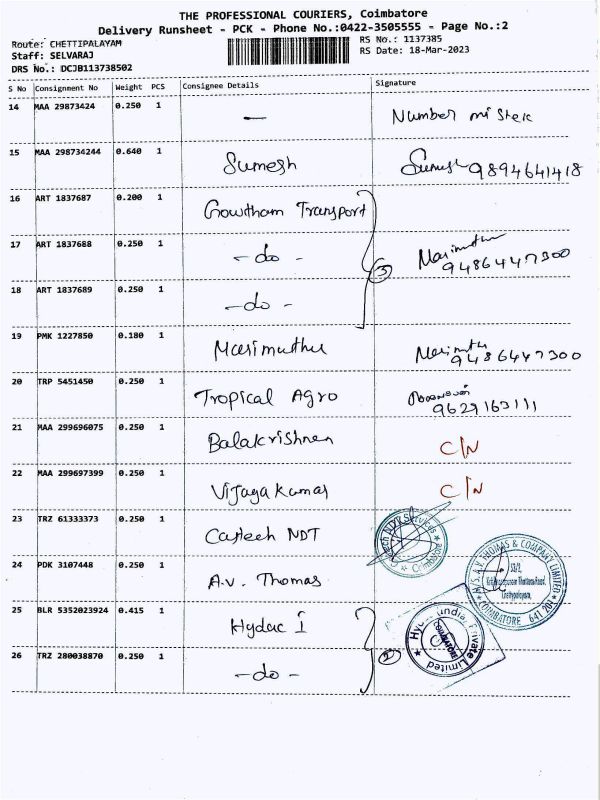 THE PROFESSIONAL COURIERS, Coimbatore
Delivery Runsheet - PCK - Phone No.:0422-3505555 - Page No.:2
Route: CHETTIPALAYAM RS No.: 1137385
Staff: SELVARAJ RS Date: 18-Mar-2023
DRS No.: DCJB113738502
S No Consignment No Weight PCS Consignee Details Signature
14 MAA 29873424 0.250 1 — Number mistek
15 MAA 298734244 0.640 1 Sumesh Sumesh 9894641418
16 ART 1837687 0.200 1 Gowtham Transport
17 ART 1837688 0.250 1 - do - 3 Marimuthu 9486447300
18 ART 1837689 0.250 1 - do -
19 PMK 1227850 0.180 1 Marimuthu Marimuthu 9486447300
20 TRP 5451450 0.250 1 Tropical Agro 9629163111
21 MAA 299696075 0.250 1 Balakrishnan C/N
22 MAA 299697399 0.250 1 Vijaya Kumar C/N
23 TRZ 61333373 0.250 1 Castech NDT Services Coimbatore
24 PDK 3107448 0.250 1 A.V. Thomas M/S. A.V. THOMAS & COMPANY LIMITED COIMBATORE 641 201
25 BLR 5352023924 0.415 1 Hydac I India Private Limited COIMBATORE
26 TRZ 280038870 0.250 1 - do - 2